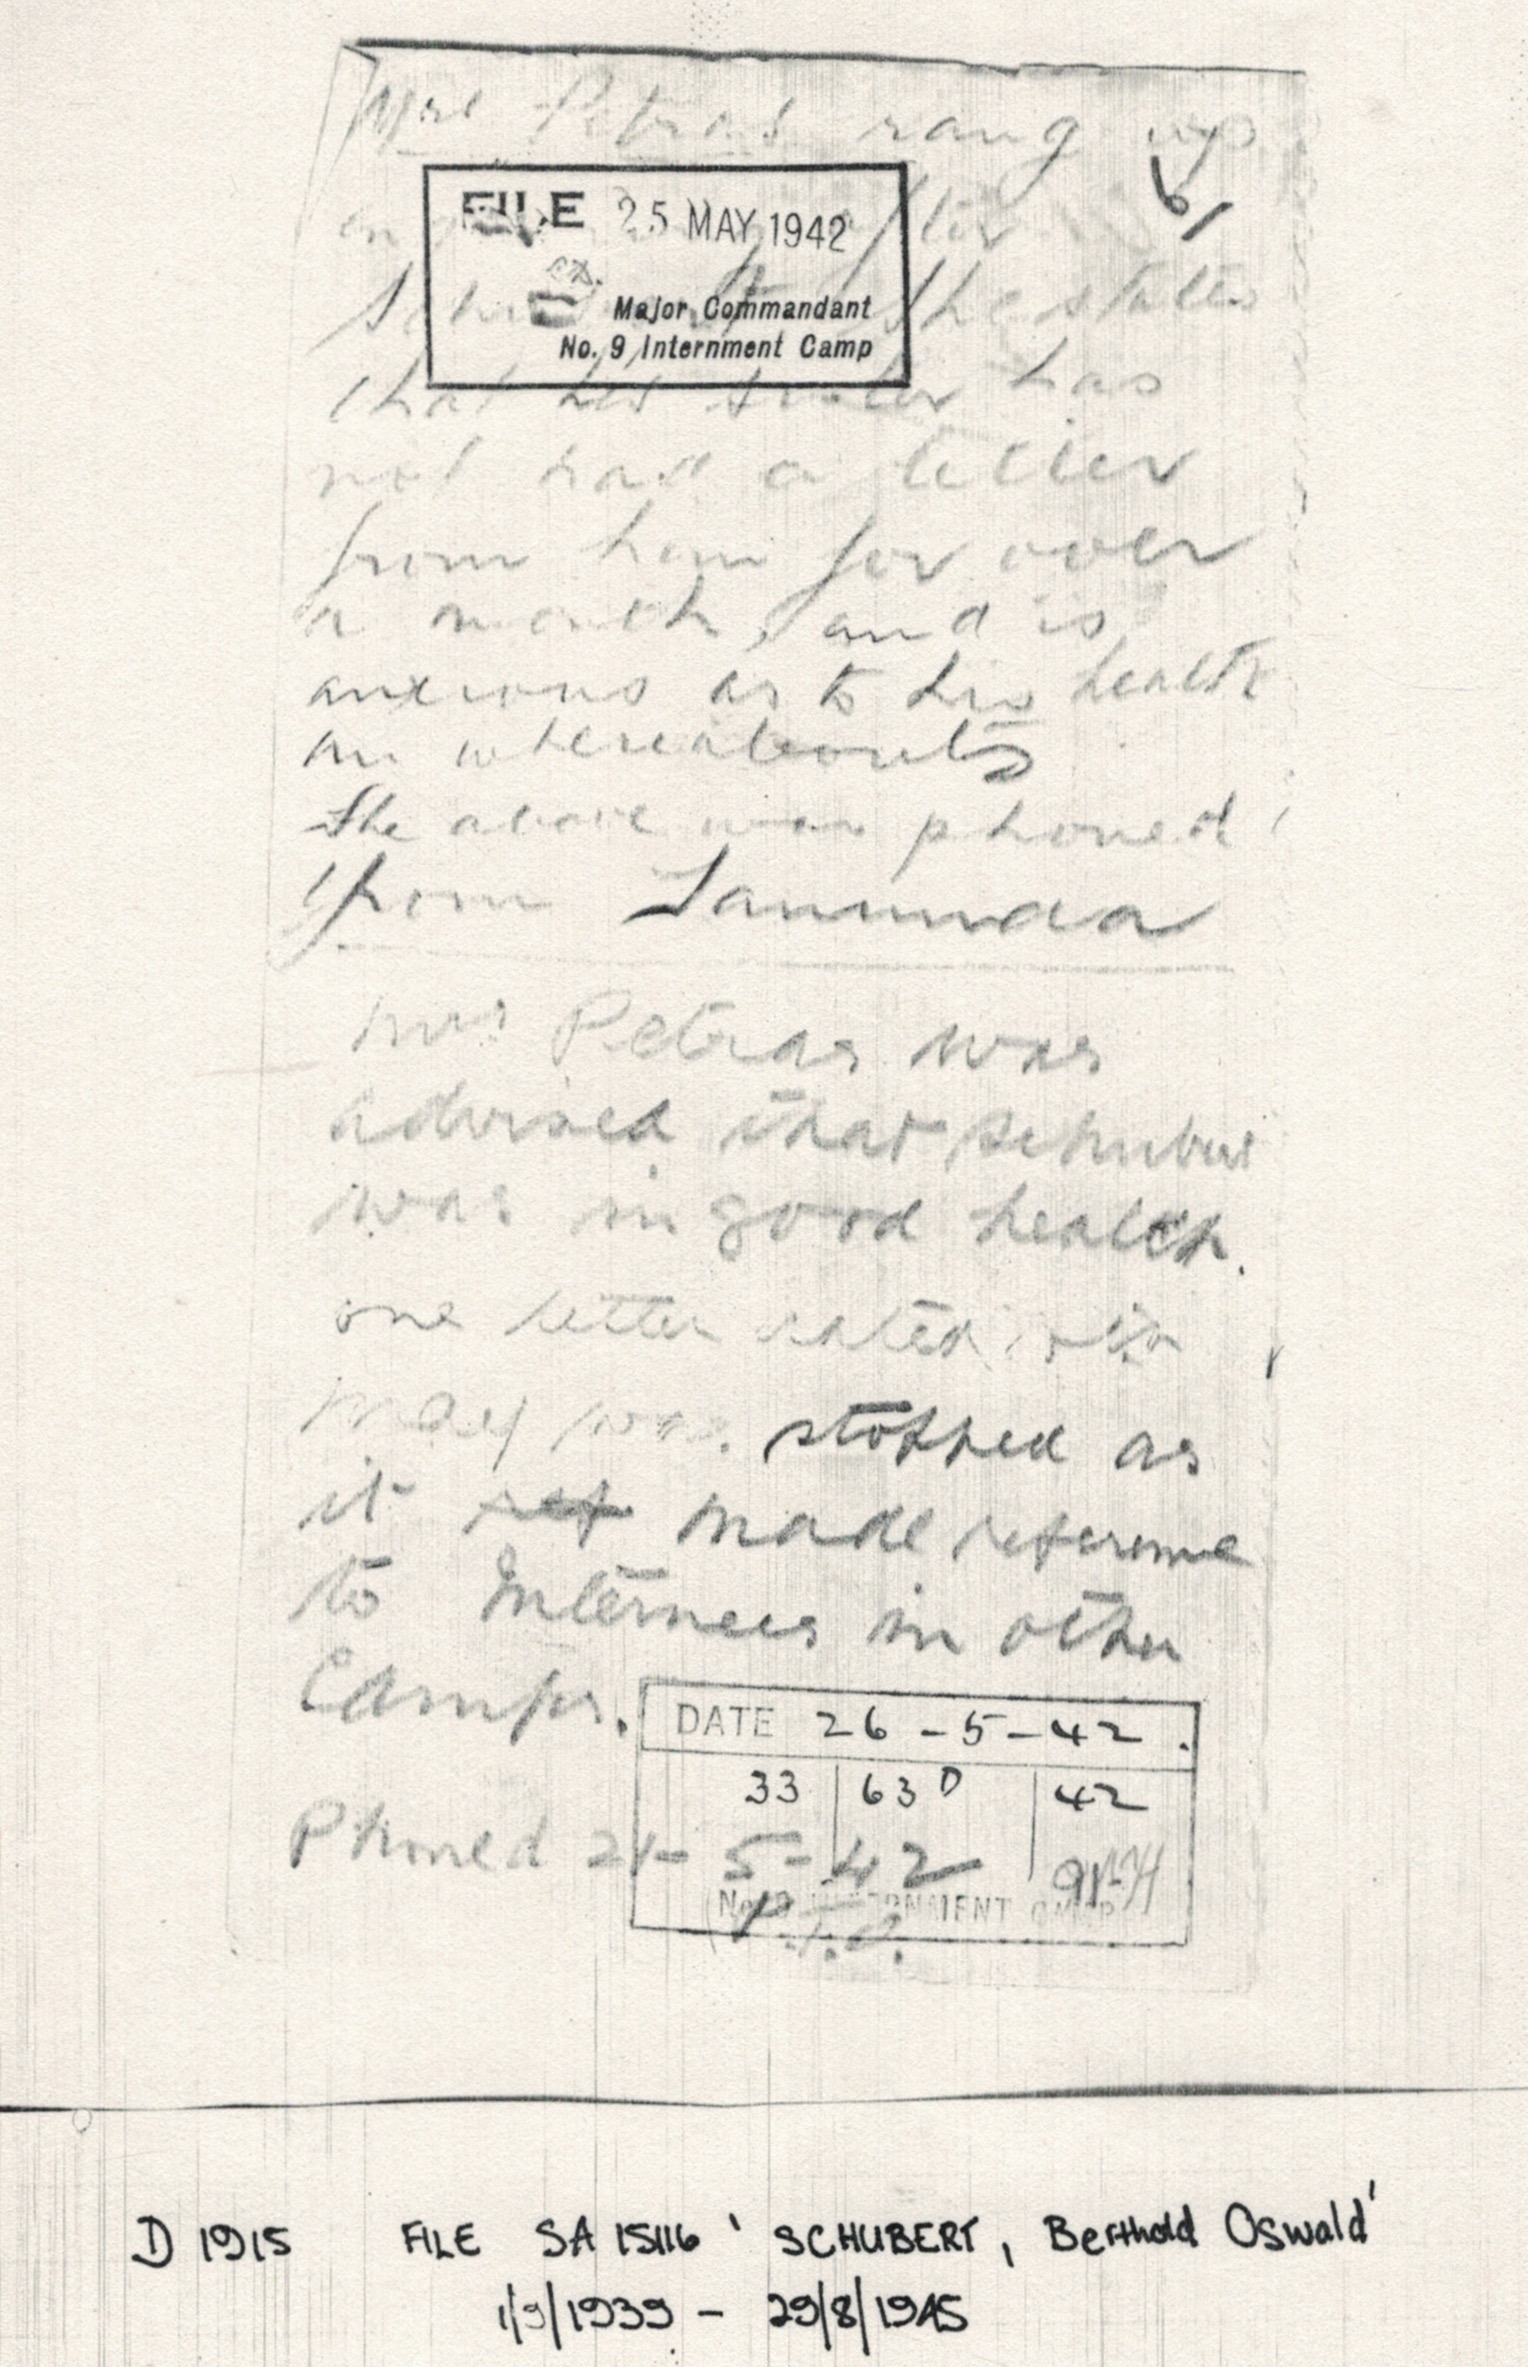 Mrs Petras rang up
FILE 25 MAY 1942
Major Commandant
No. 9 Internment Camp
She states
that his sister has
not had a letter
from him for over
a month, and is
anxious as to his health
whereabouts
The above was phoned
from Tanunda
Mrs Petras was
advised that Schubert
was in good health.
one letter dated
May was stopped as
it ref made reference
to Internees in other
Camps.
DATE 26-5-42.
33 63D 42
Phoned 5-42
INTERNMENT CAMP
P.T.O.
D 1915 FILE SA 15116 'SCHUBERT, Berthold Oswald'
1/9/1939 - 29/8/1945